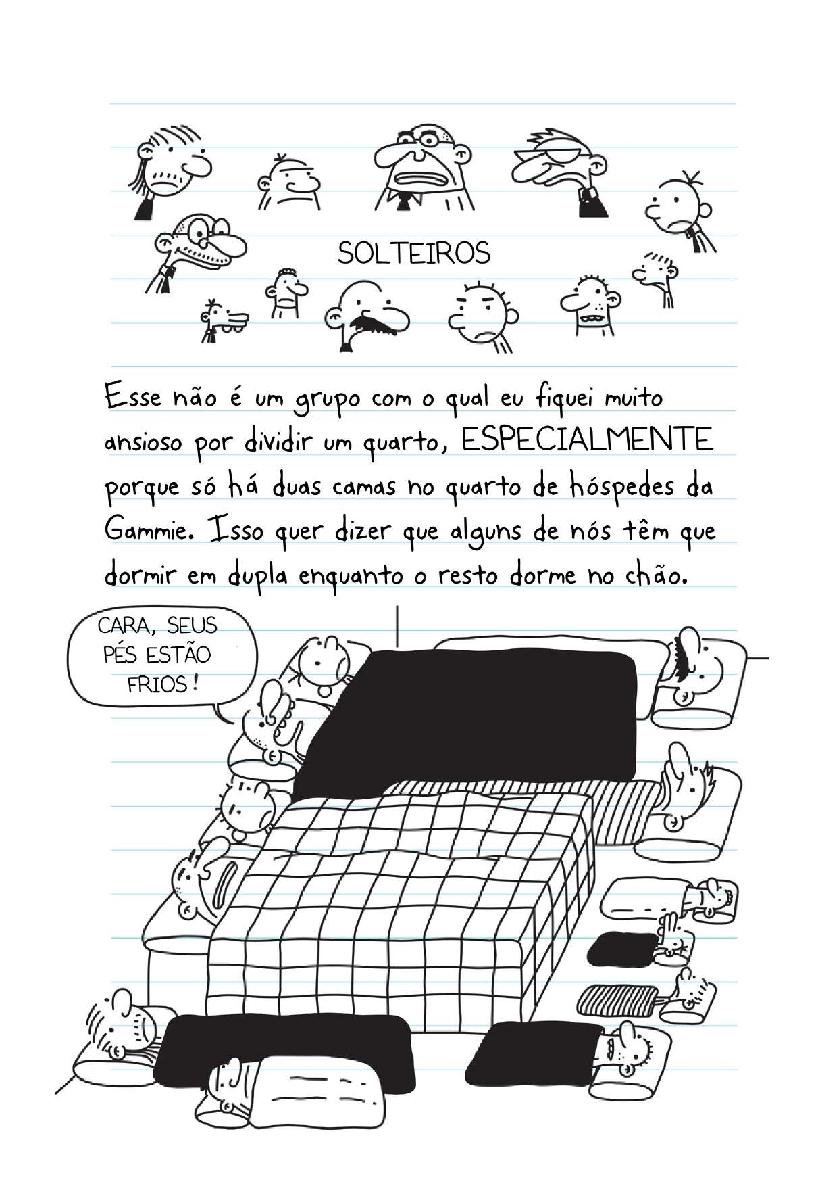 SOLTEIROS
Esse não é um grupo com o qual eu fiquei muito
ansioso por dividir um quarto, ESPECIALMENTE
porque só há duas camas no quarto de hóspedes da
Gammie. Isso quer dizer que alguns de nós têm que
dormir em dupla enquanto o resto dorme no chão.
CARA, SEUS
PÉS ESTÃO
FRIOS!